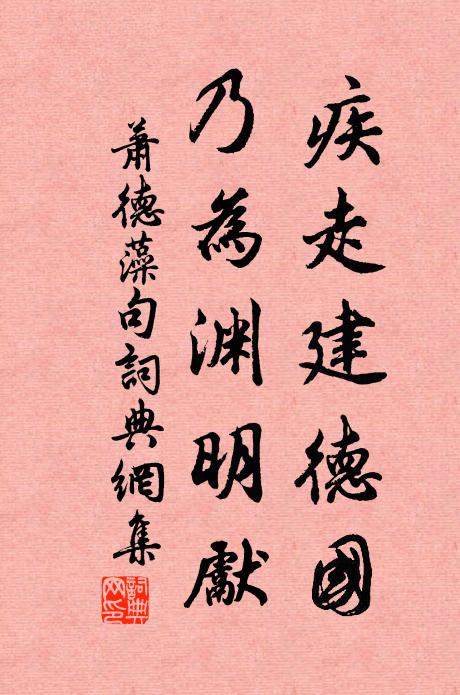 疾走建德國
乃為渊明獻
蕭德藻句詞典網集
詞典
网印